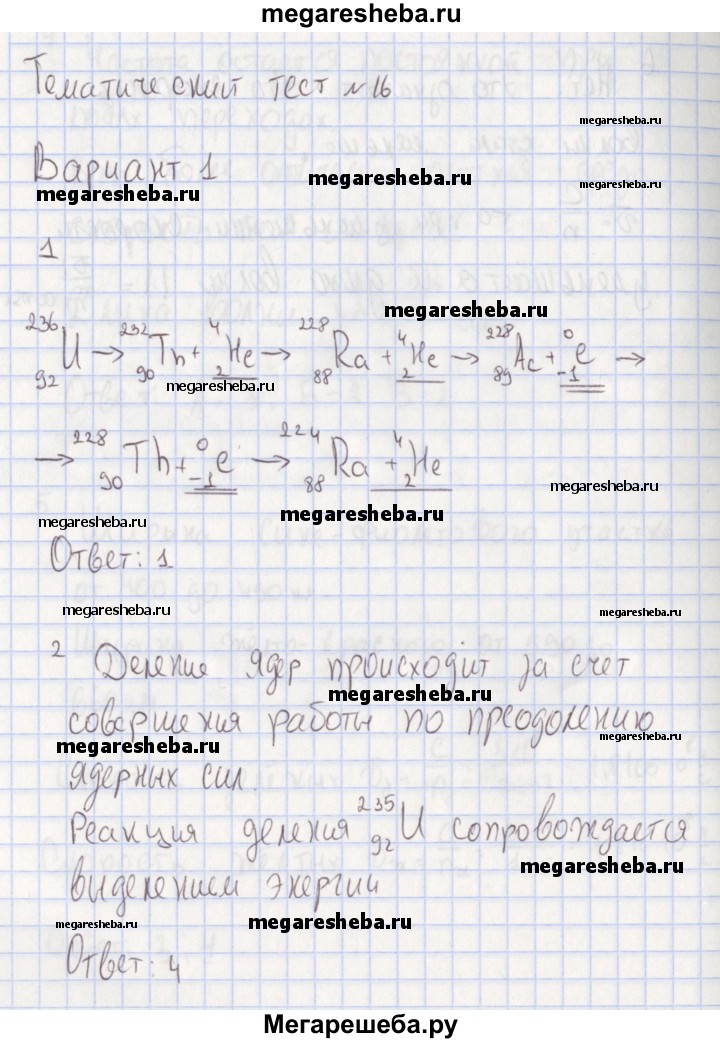 megaresheba.ru
Тематический тест №16
megaresheba.ru
Вариант 1
megaresheba.ru
megaresheba.ru
1
megaresheba.ru
²³⁶₉₂U → ²³²₉₀Th + ⁴₂He → ²²⁸₈₈Ra + ⁴₂He → ²²⁸₈₉Ac + ⁰₋₁e →
megaresheba.ru
→ ²²⁸₉₀Th + ⁰₋₁e → ²²⁴₈₈Ra + ⁴₂He
megaresheba.ru
megaresheba.ru
megaresheba.ru
Ответ: 1
megaresheba.ru
megaresheba.ru
2 Деление ядер происходит за счет
megaresheba.ru
совершения работы по преодолению
megaresheba.ru
megaresheba.ru
ядерных сил.
Реакция деления ²³⁵₉₂U сопровождается
megaresheba.ru
выделением энергии
megaresheba.ru
megaresheba.ru
megaresheba.ru
Ответ: 4
Мегарешеба.ру